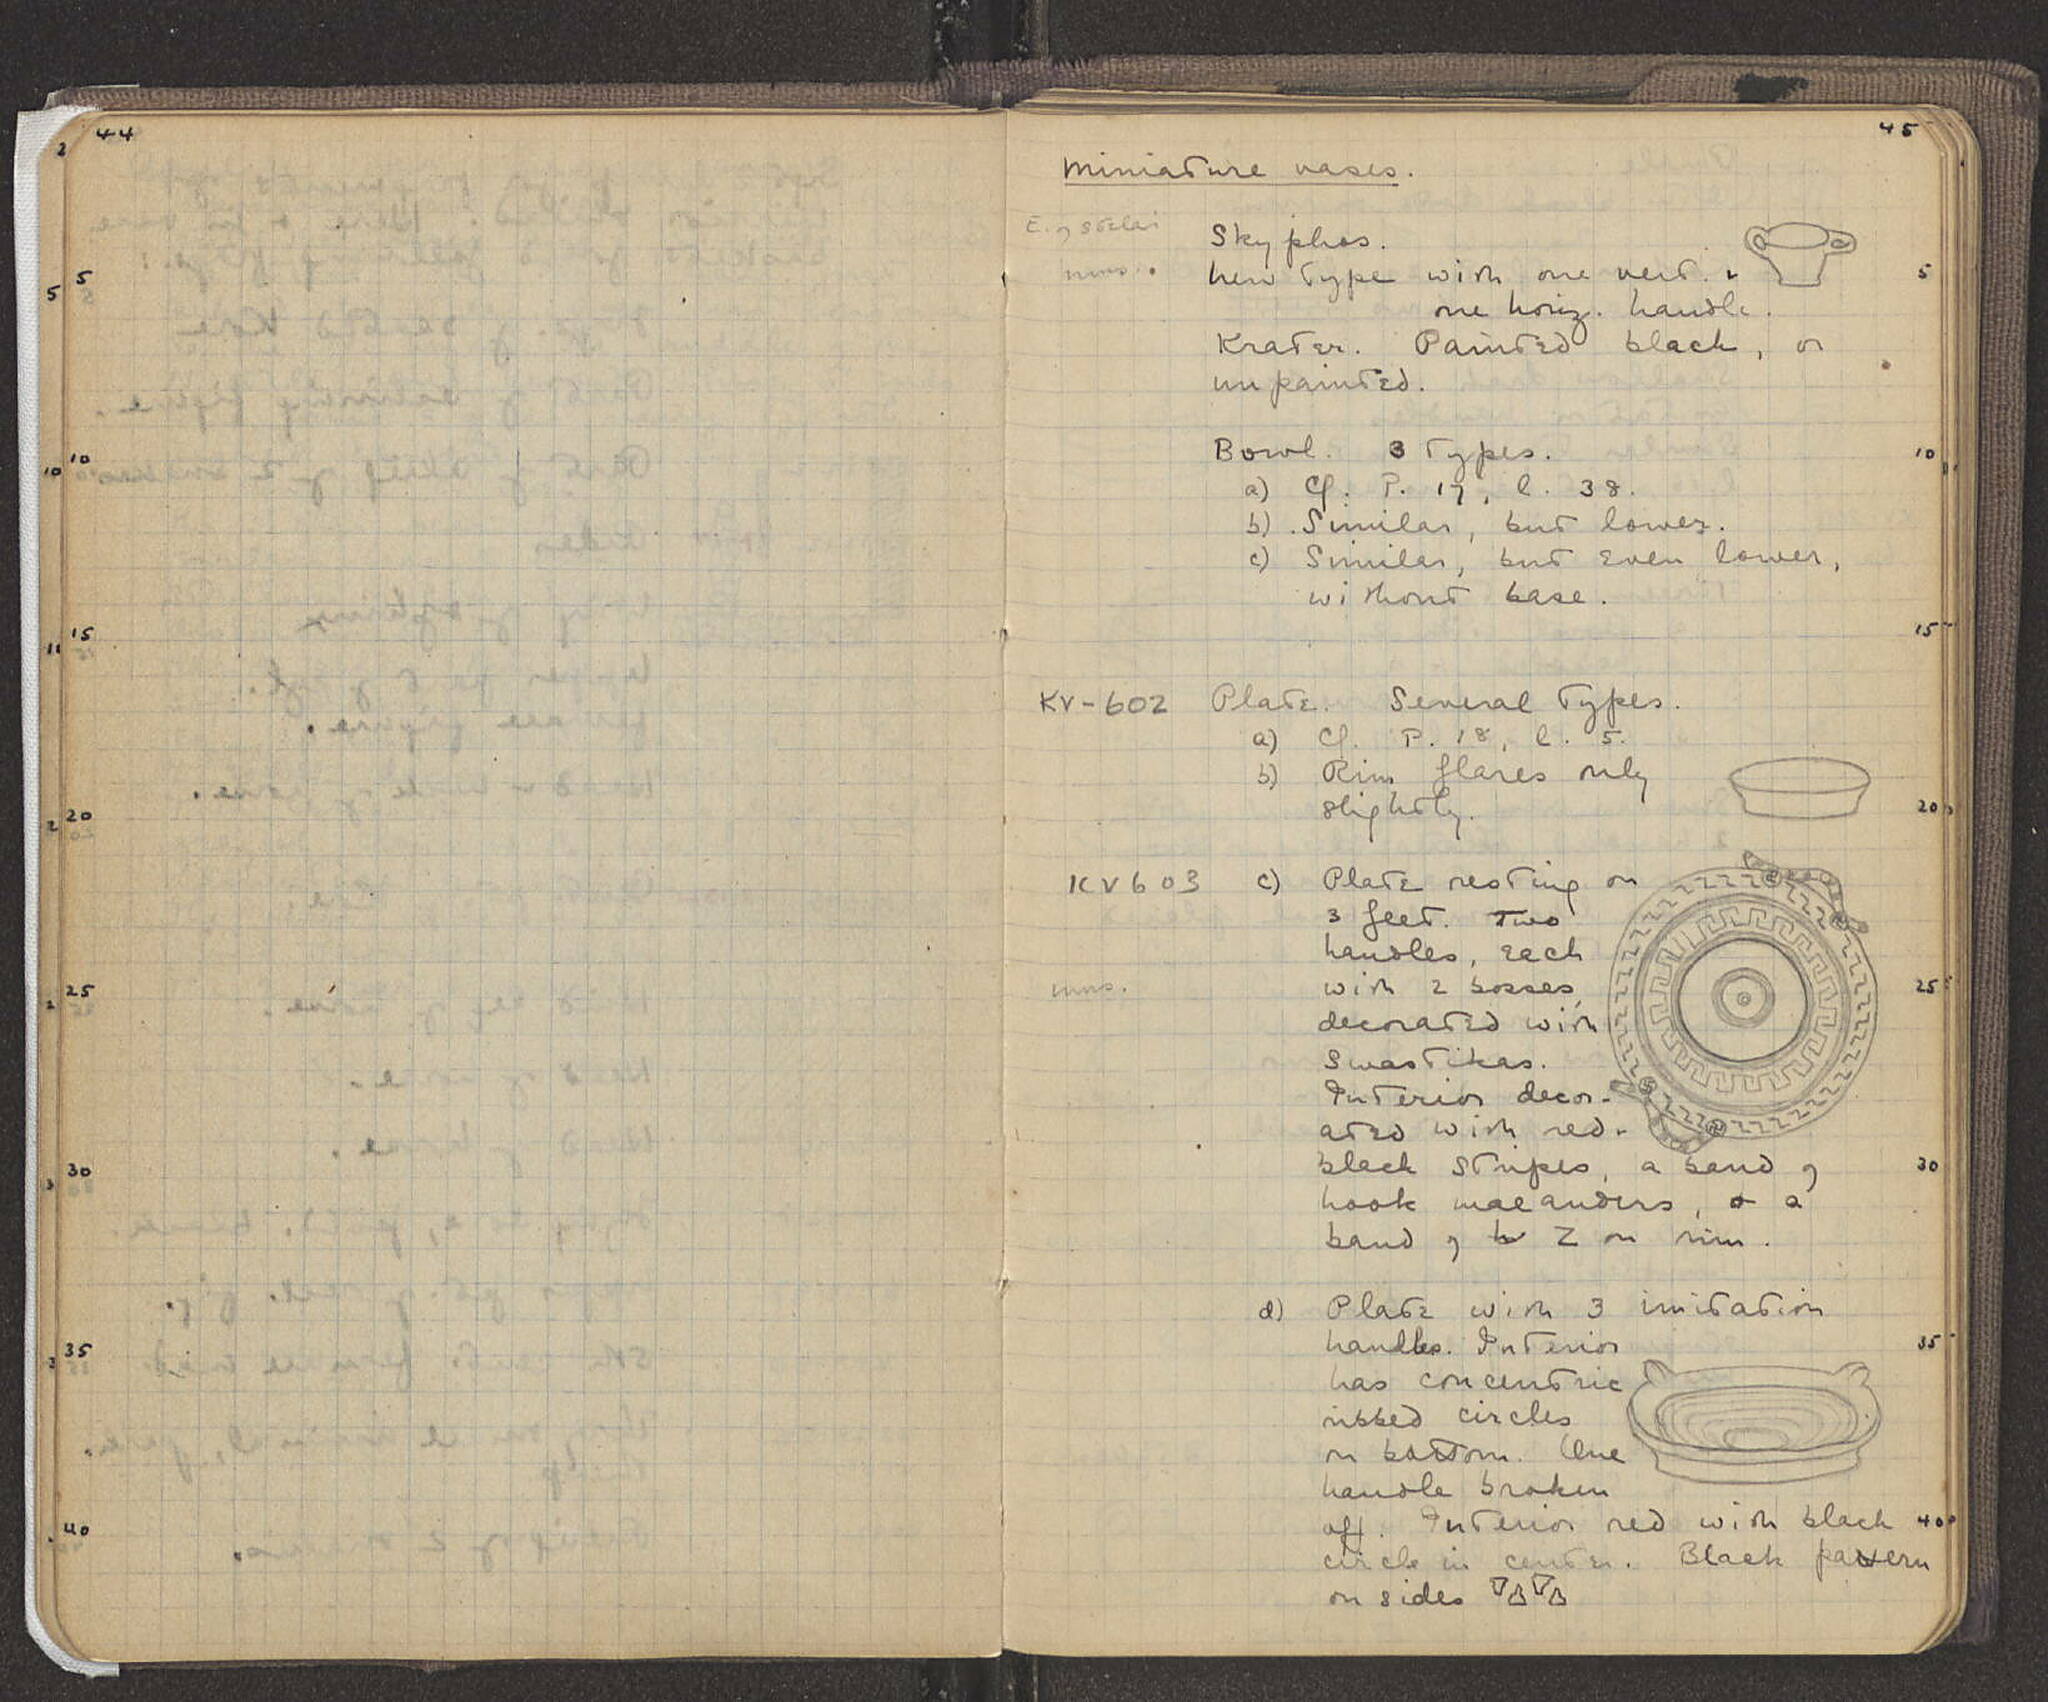 44
5
10
15
20
25
30
35
40
45
Miniature vases.
E. of Stelai
mus.
Skyphos.
New type with one vert. &
one horiz. handle.
Krater. Painted black, or
unpainted.
Bowl. 3 types.
a) Cf. P. 17, l. 38.
b) Similar, but lower.
c) Similar, but even lower,
without base.
KV-602 Plate. Several types.
a) Cf. P. 18, l. 5.
b) Rim flares only
slightly.
KV603 c) Plate resting on
3 feet. Two
handles, each
mus. with 2 bosses,
decorated with
Swastikas.
Interior decor-
ated with red &
black stripes, a band of
hook maeanders, & a
band of Z on rim.
d) Plate with 3 imitation
handles. Interior
has concentric
ribbed circles
on bottom. One
handle broken
off. Interior red with black
circle in center. Black pattern
on sides
5
10
15
20
25
30
35
40